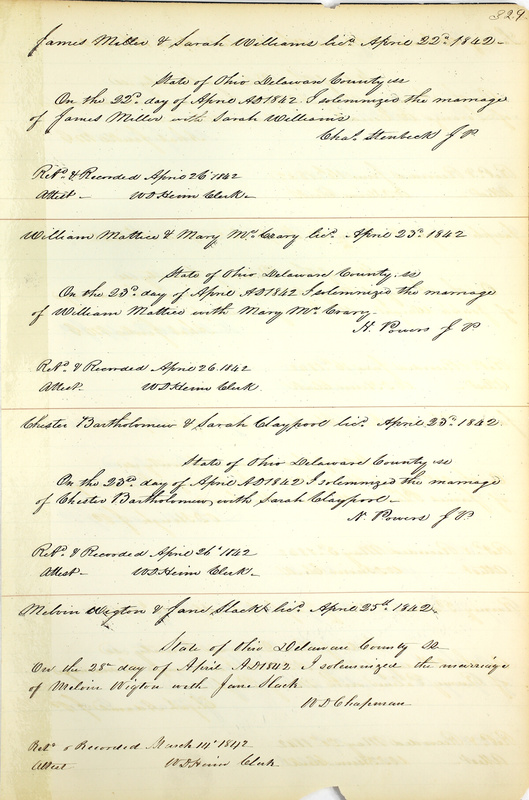 329
James Miller & Sarah Williams licd April 22d 1842
State of Ohio Delaware County ss
On the 22d day of April AD 1842 I solemnized the marriage
of James Miller with Sarah Williams
Chas. Stenbeck J P
Retd & Recorded April 26 1842
Attest W D Heim Clerk
William Mattice & Mary McCrary licd April 23d 1842
State of Ohio Delaware County ss
On the 23d day of April AD 1842 I solemnized the marriage
of William Mattice with Mary McCrary.
N. Powers J P
Retd & Recorded April 26 1842
Attest W D Heim Clerk
Chester Bartholomew & Sarah Claypool licd April 23d 1842
State of Ohio Delaware County ss
On the 23d day of April AD 1842 I solemnized the marriage
of Chester Bartholomew with Sarah Claypool
N. Powers J P
Retd & Recorded April 26 1842
Attest W D Heim Clerk
Melvin Wigton & Jane Slack licd April 25d 1842
State of Ohio Delaware County ss
On the 28 day of April AD 1842 I solemnized the marriage
of Melvin Wigton with Jane Slack
W D Chapman
Retd & Recorded March 14 1842
Attest W D Heim Clerk